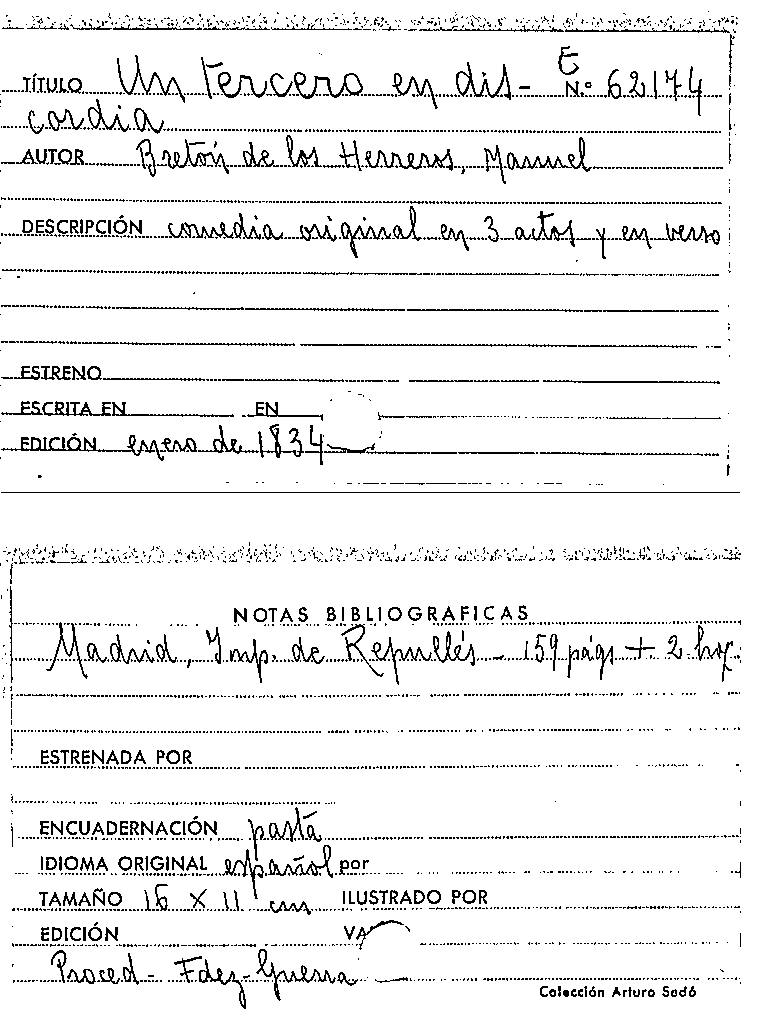 TÍTULO Un tercero en dis- E N.º 62174
cordia
AUTOR Bretón de los Herreros, Manuel
DESCRIPCIÓN comedia original en 3 actos y en verso
ESTRENO
ESCRITA EN EN
EDICIÓN enero de 1834
NOTAS BIBLIOGRAFICAS
Madrid, Imp. de Repullés - 159 págs + 2 hoj.
ESTRENADA POR
ENCUADERNACIÓN pasta
IDIOMA ORIGINAL español por
TAMAÑO 16 X 11 cm ILUSTRADO POR
EDICIÓN VA
Proced - Fdez-Guerra
Colección Arturo Sedó